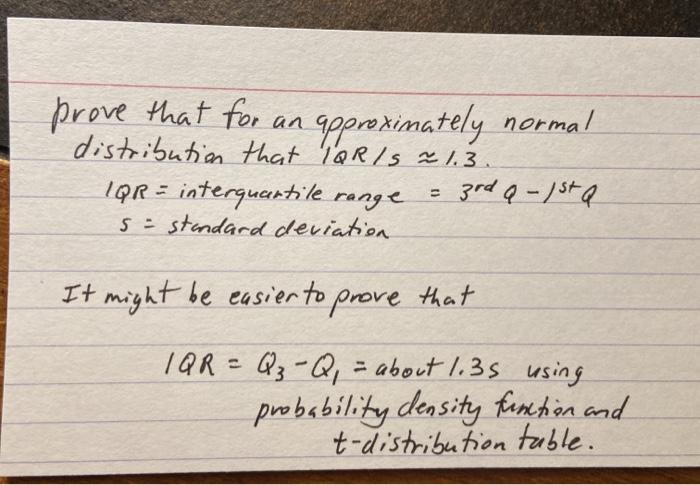 prove that for an approximately normal
distribution that IQR/s ≈ 1.3.
IQR = interquartile range = 3rd Q - 1st Q
s = standard deviation
It might be easier to prove that
IQR = Q3 - Q1 = about 1.3s using
probability density function and
t-distribution table.